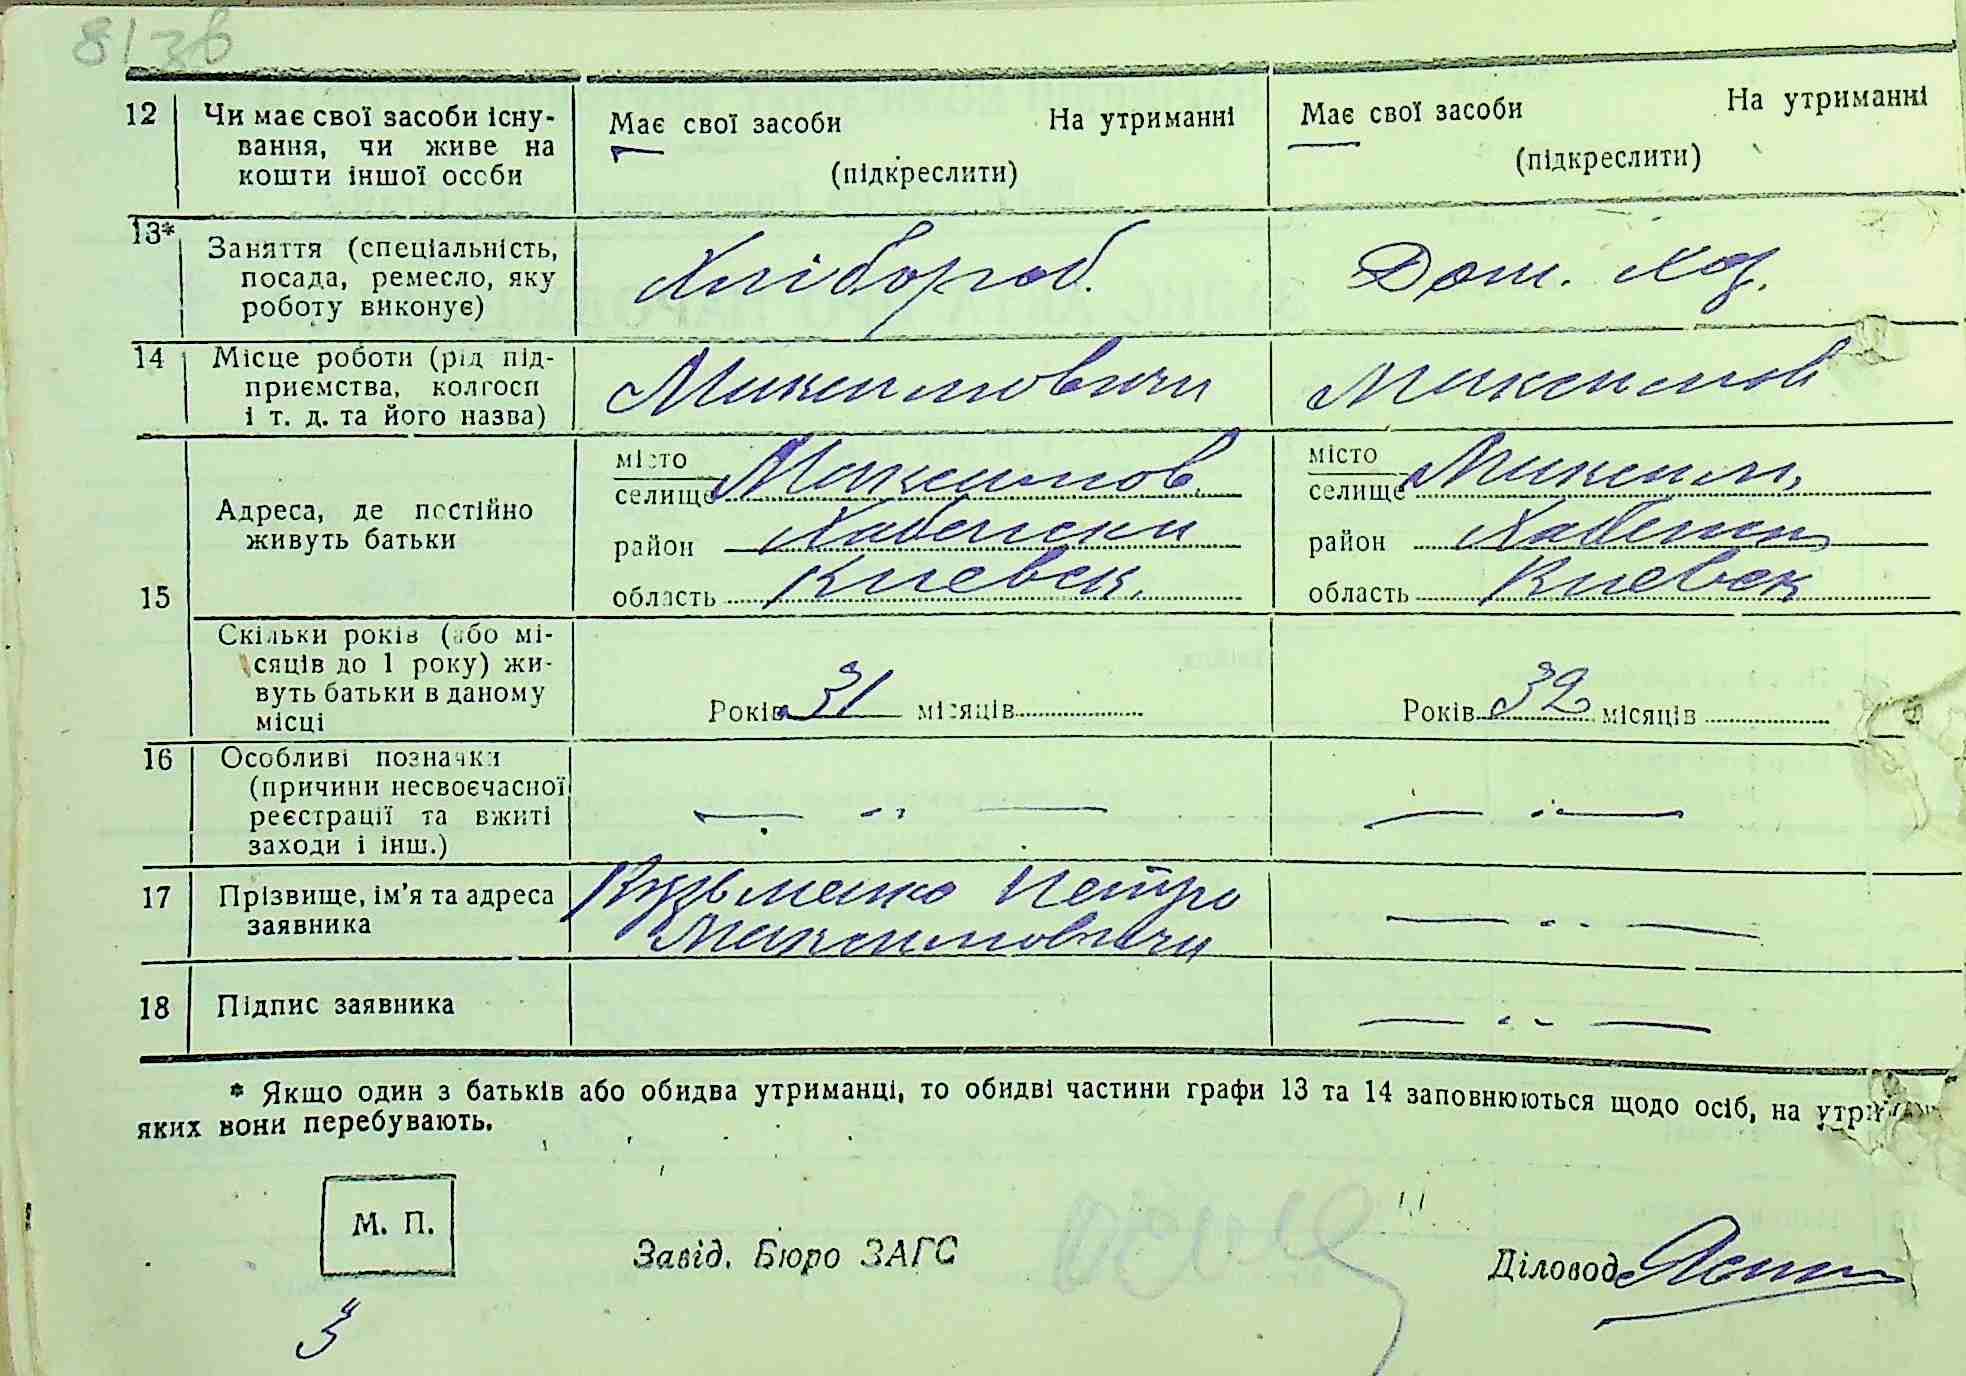 81 зв
12 Чи має свої засоби існу-
вання, чи живе на
кошти іншої особи
Має свої засоби На утриманні
(підкреслити)
Має свої засоби На утриманні
(підкреслити)
13* Заняття (спеціальність,
посада, ремесло, яку
роботу виконує)
Хлібороб.
Дом. хоз.
14 Місце роботи (рід під-
приємства, колгосп
і т. д. та його назва)
Максимовичи
Максимов
15
Адреса, де постійно
живуть батьки
місто
селище Максимов.
район Хабенски
область Киевск.
місто
селище Максим.
район Хабенск
область Киевск
Скільки років (або мі-
сяців до 1 року) жи-
вуть батьки в даному
місці
Років 31 місяців
Років 32 місяців
16 Особливі позначки
(причини несвоєчасної
реєстрації та вжиті
заходи і інш.)
— " —
— " —
17 Прізвище, ім'я та адреса
заявника
Кузьменко Петро
Максимовичи
— " —
18 Підпис заявника
— " —
* Якщо один з батьків або обидва утриманці, то обидві частини графи 13 та 14 заповнюються щодо осіб, на
яких вони перебувають.
М. П.
Завід. Бюро ЗАГС
Діловод